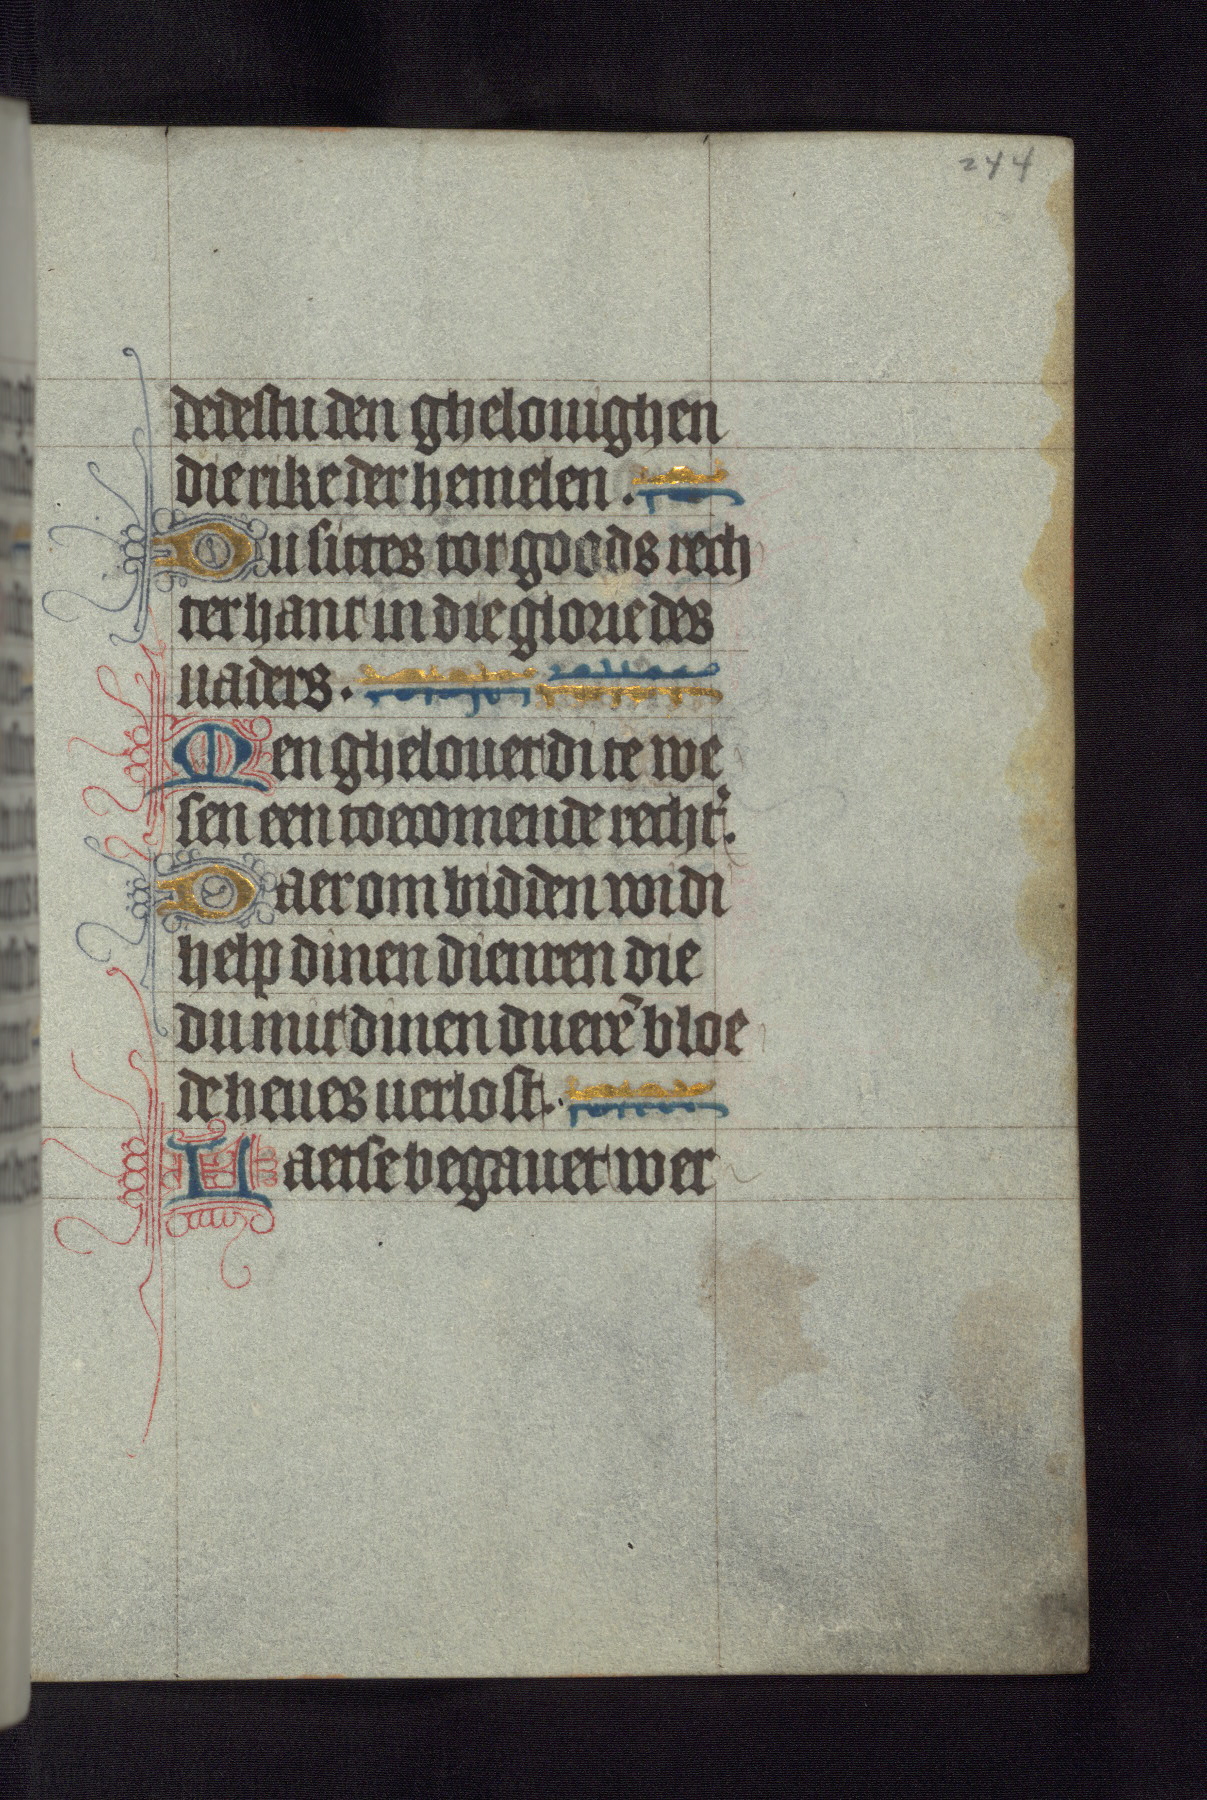 244
dedestu den ghelouighen
die rike der hemelen.
Du sittes tor goods rech
ter hant in die glorie des
uaders.
Men ghelouet di te we
sen een toecomende recht᷑.
Daer om bidden wi di
help dinen dienren die
du mit dinen duerē bloe
de heues uerlost.
Laetse begauet wer